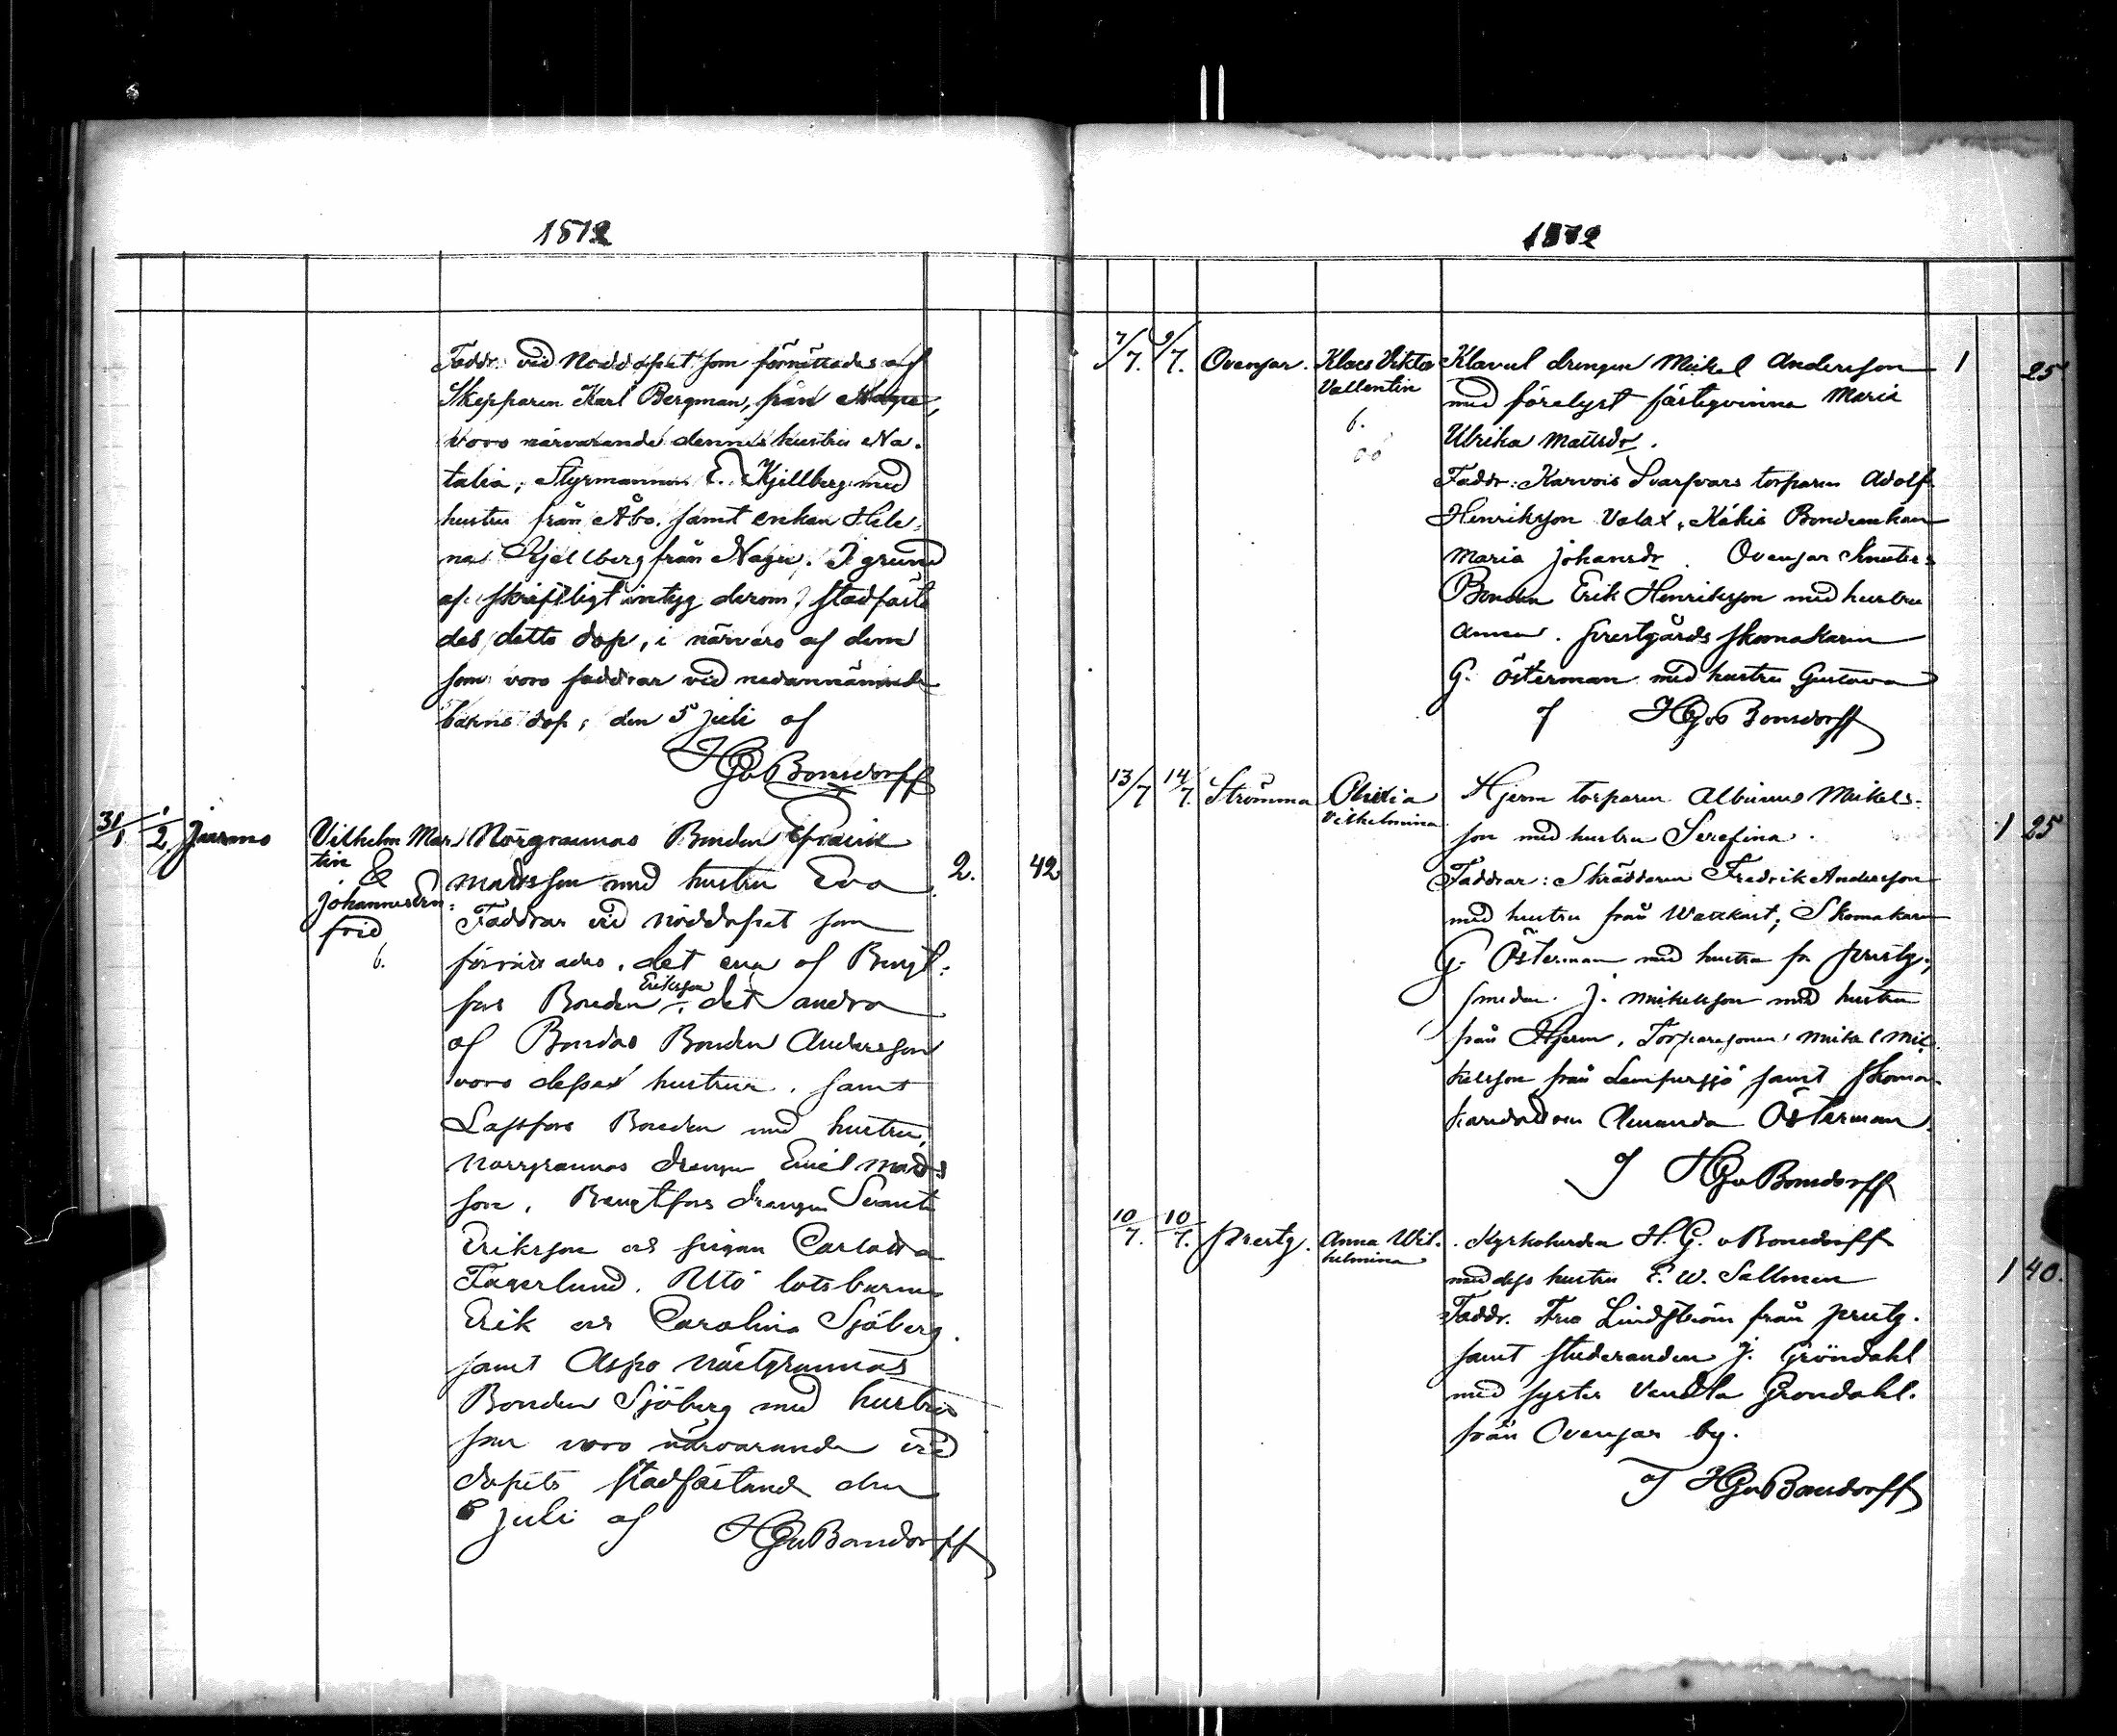 1872
Faddr. vid Nöddopet som förrättades af
Skepparen Karl Bergman, från Nagu,
voro närvarande dennes hustru Na-
talia, Styrmannen E. Kjellberg med
hustru från Åbo, samt enkan Hele-
na Kjellberg från Nagu. I grund
af skriftligt intyg derom, stadfäste
des detta dop, i närvaro af dem
som voro faddrar vid nedannämnde
barns dop, den 5 juli af
HGvBonsdorff
31/1 1/2 Jurmo Vilhelm Mar Norgrannas Bonden Fredrik
tin & Mattsson med hustru Eva 2. 42
Johannes Em= Faddrar vid nöddopet som
frid förrättades, det ena af Bengt=
6. fors Bonden Eriksson, det andra
af Bondas Bonden Andersson
voro dessas hustrur, samt
Lassfors Bonden med hustru,
Norrgrannas drengen Emil Matts
son, Bengtfors drengen Svante
Eriksson och pigan Carlotta
Fagerlund. Utö lotsbarnen
Erik och Carolina Sjöberg.
samt Aspö Nästgrannas
Bonden Sjöberg med hustru
som voro närvarande vid
dopets stadfästande den
5 juli af HGvBonsdorff
1872
7/7. 9/7. Ovensor. Klaes Viktor Klavul drengen Mickel Andersson 1 25
Vallentin med förelyst fästeqvinna Maria
6. Ulrika Mattsdr.
Faddr: Karvois Svarfvars torparen Adolf
Henriksson Valax, Käkis Bondeenkan
Maria Johansdr. Ovensor Knuters
Bonden Erik Henriksson med hustru
Anna. Prestgårds skomakaren
G. Österman med hustru Gustava
af HGvBonsdorff
13/7 14/7. Strömma Olivia Hjerm torparen Albinus Mikels-
Vilhelmina son med hustru Serefina. 1 25
Faddrar: Skräddaren Fredrik Andersson
med hustru från Wattkast, Skomakaren
G. Österman med hustru fr Prestg.,
smeden J. Mickelsson med hustru
från Hjerm, Torparesonen Mikel Mic
kelsson från Lempersjö samt skoma-
karedottern Amanda Österman.
af HGvBonsdorff
10/7. 10/7. Prestg. Anna Wil- Kyrkoherden H. G. v Bonsdorff
helmina med dess hustru E. W. Sallmen 1 40.
Faddr. Fru Lindström från prestg.
samt studeranden J. Gröndahl
med syster Vendla Grondahl.
från Ovensor by.
af HGvBonsdorff